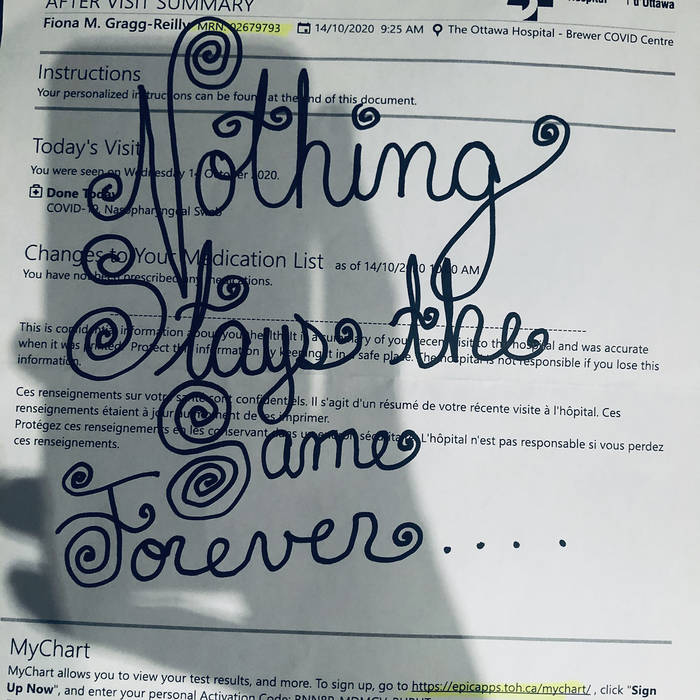 AFTER VISIT SUMMARY
Fiona M. Gragg-Reilly MRN: 02679793 14/10/2020 9:25 AM The Ottawa Hospital - Brewer COVID Centre
Instructions
Your personalized instructions can be found at the end of this document.
Nothing
Today's Visit
You were seen on Wednesday 14 October 2020.
Done Today
COVID-19, Nasopharyngeal Swab
Changes to Your Medication List as of 14/10/2020 AM
You have not been prescribed any medications.
Stays the
This is confidential information about your health. It is a summary of your recent visit to the hospital and was accurate
when it was printed. Protect this information by keeping it in a safe place. The hospital is not responsible if you lose this
information.
Ces renseignements sur votre santé sont confidentiels. Il s'agit d'un résumé de votre récente visite à l'hôpital. Ces
renseignements étaient à jour au moment de les imprimer.
Protégez ces renseignements en les conservant dans un endroit sécuritaire. L'hôpital n'est pas responsable si vous perdez
ces renseignements.
Same
Forever....
MyChart
MyChart allows you to view your test results, and more. To sign up, go to https://epicapps.toh.ca/mychart/ , click "Sign
Up Now", and enter your personal Activation Code: